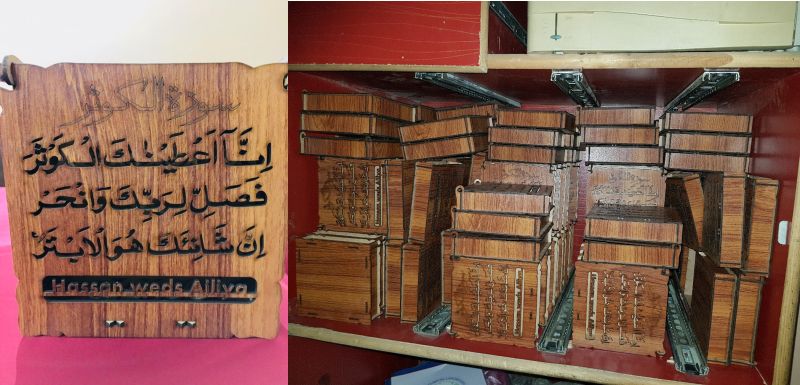 سورة الكوثر
اِنَّاۤ اَعْطَيْنٰكَ الْكَوْثَرَ
فَصَلِّ لِرَبِّكَ وَانْحَرْ
اِنَّ شَانِئَكَ هُوَ الْاَبْتَرُ
Hassan weds Ailiya